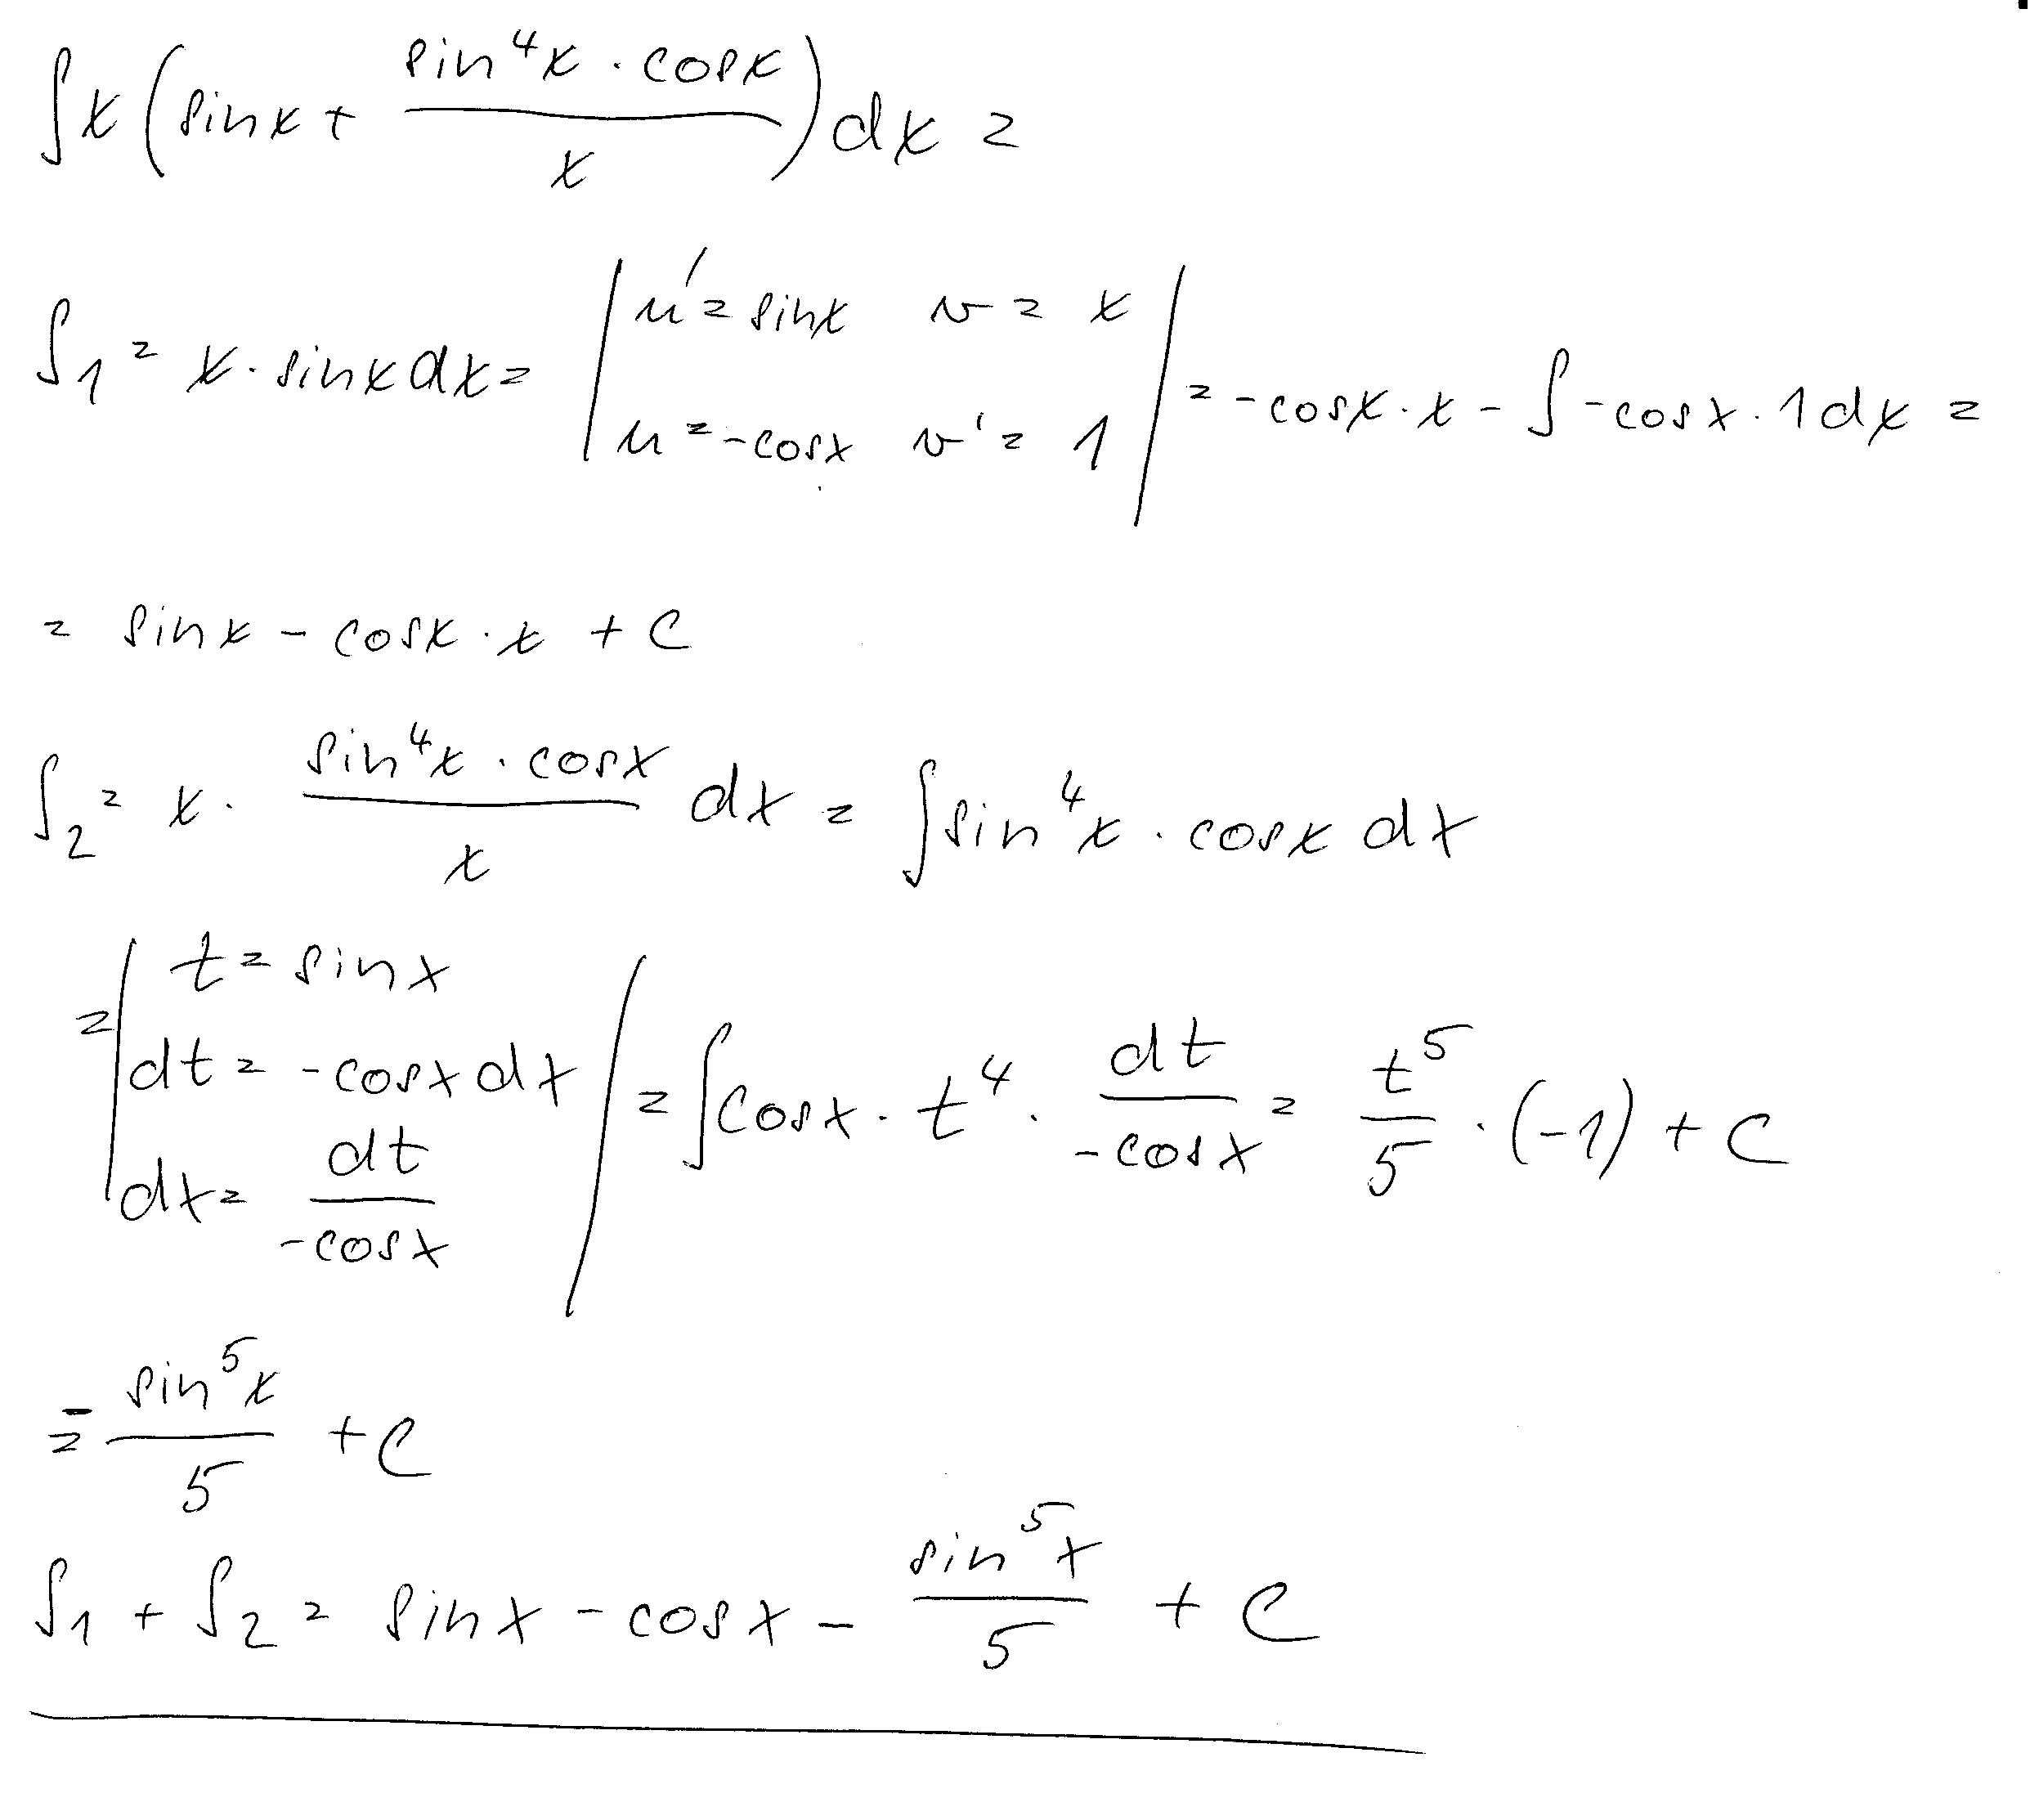 ∫ x (sin x + (sin⁴x · cos x)/x) dx =
∫₁ = x · sin x dx = | u' = sin x  v = x ; u = -cos x  v' = 1 | = -cos x · x - ∫ -cos x · 1 dx =
= sin x - cos x · x + C
∫₂ = x · (sin⁴x · cos x)/x dx = ∫ sin⁴x · cos x dx
= | t = sin x ; dt = -cos x dx ; dx = dt/(-cos x) | = ∫ cos x · t⁴ · dt/(-cos x) = t⁵/5 · (-1) + C
= - sin⁵x/5 + C
∫₁ + ∫₂ = sin x - cos x - sin⁵x/5 + C